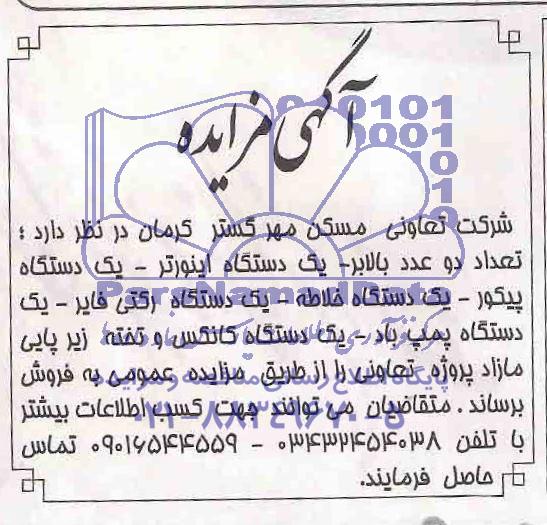 آگهی مزایده
شرکت تعاونی مسکن مهر گستر کرمان در نظر دارد ؛
تعداد دو عدد بالابر- یک دستگاه اینورتر - یک دستگاه
پیکور - یک دستگاه خلاطه - یک دستگاه رکتی فایر - یک
دستگاه پمپ باد - یک دستگاه کانکس و تخته زیر پایی
مازاد پروژه تعاونی را از طریق مزایده عمومی به فروش
برساند . متقاضیان می توانند جهت کسب اطلاعات بیشتر
با تلفن ۰۳۴۳۲۴۵۴۰۳۸ - ۰۹۰۱۶۵۴۴۵۵۹ تماس
حاصل فرمایند.
ParsNamadData
۰۲۱-۸۸۳۴۹۶۷۰-۵